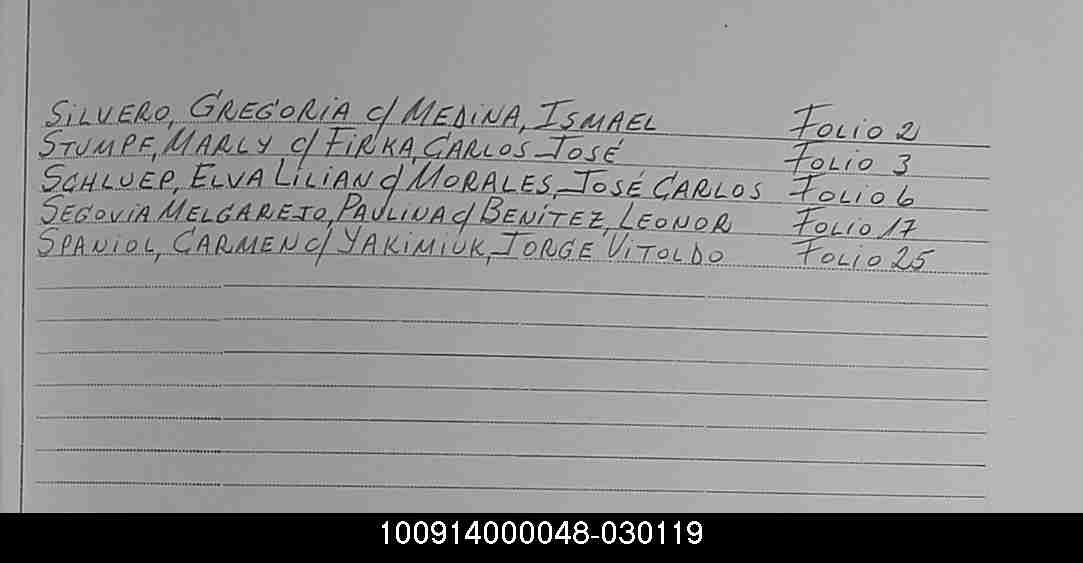 SILVERO, GREGORIA c/ MEDINA, ISMAEL Folio 2
STUMPF, MARLY c/ FIRKA, CARLOS JOSÉ Folio 3
SCHLUEP, ELVA LILIAN c/ MORALES, JOSÉ CARLOS Folio 6
SEGOVIA MELGAREJO, PAULINA c/ BENÍTEZ, LEONOR Folio 17
SPANIOL, CARMEN c/ YAKIMIUK, JORGE VITOLDO Folio 25
100914000048-030119